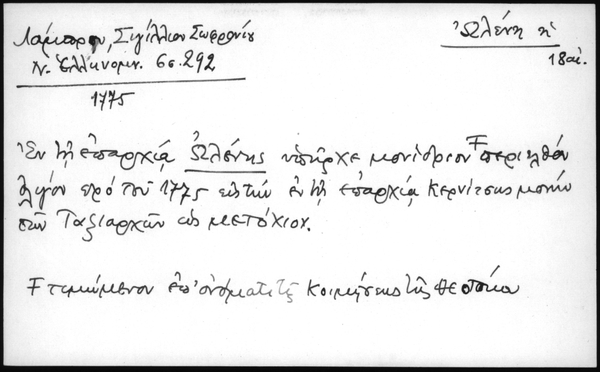 Λάμπρου, Σιγίλλιον Σωφρονίου
Ν. Ἑλληνομν. 6σ. 292
1775
Ὠλένη ἡ
18 αἰ.
Ἐν τῇ ἐπαρχίᾳ Ὠλένης ὑπῆρχε μονύδριον Ŧ περιελθὸν
ὀλίγον πρὸ τοῦ 1775 εἰς τὴν ἐν τῇ ἐπαρχίᾳ Κερνίτσης μονὴν
τῶν Ταξιαρχῶν ὡς μετόχιον.
Ŧ τιμώμενον ἐπ' ὀνόματι τῆς κοιμήσεως τῆς Θεοτόκου